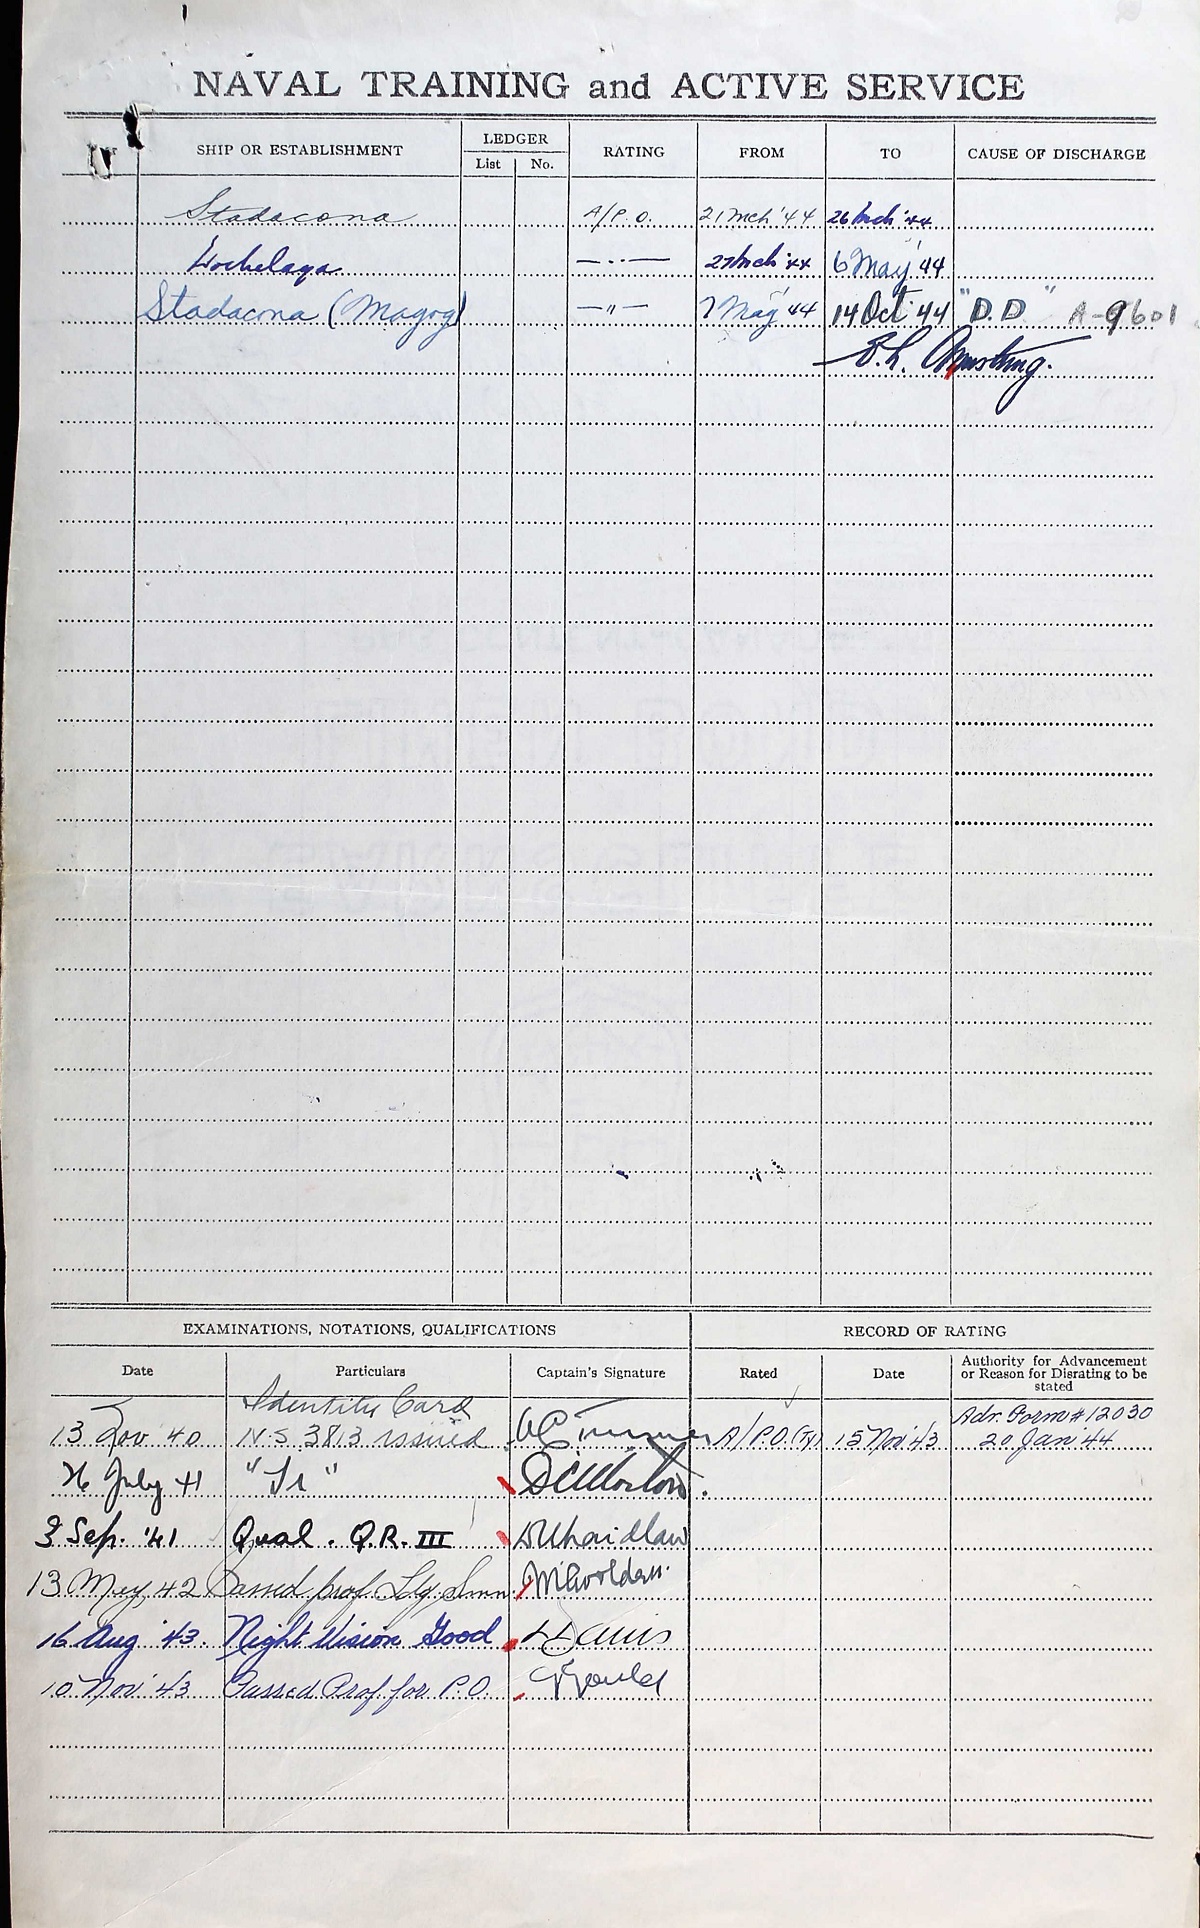 NAVAL TRAINING and ACTIVE SERVICE
SHIP OR ESTABLISHMENT LEDGER List No. RATING FROM TO CAUSE OF DISCHARGE
Stadacona A/P.O. 21 Mch '44 26 Mch '44
Hochelaga —··— 27 Mch '44 6 May '44
Stadacona (Magog) —"— 7 May '44 14 Oct '44 "D.D" A-9601
Armstrong.
EXAMINATIONS, NOTATIONS, QUALIFICATIONS RECORD OF RATING
Date Particulars Captain's Signature Rated Date Authority for Advancement or Reason for Disrating to be stated
Identity Card Adv. Form # 12030
13 Nov 40 N.S. 3813 issued A/P.O. (Ty) 15 Nov '43 20 Jan '44
26 July 41
3 Sep. '41 Qual. Q.R. III
13 May, 42 Passed prof. Ldg. Smn.
16 Aug '43. Night Vision Good
10 Nov '43 Passed Prof for P.O. Gould